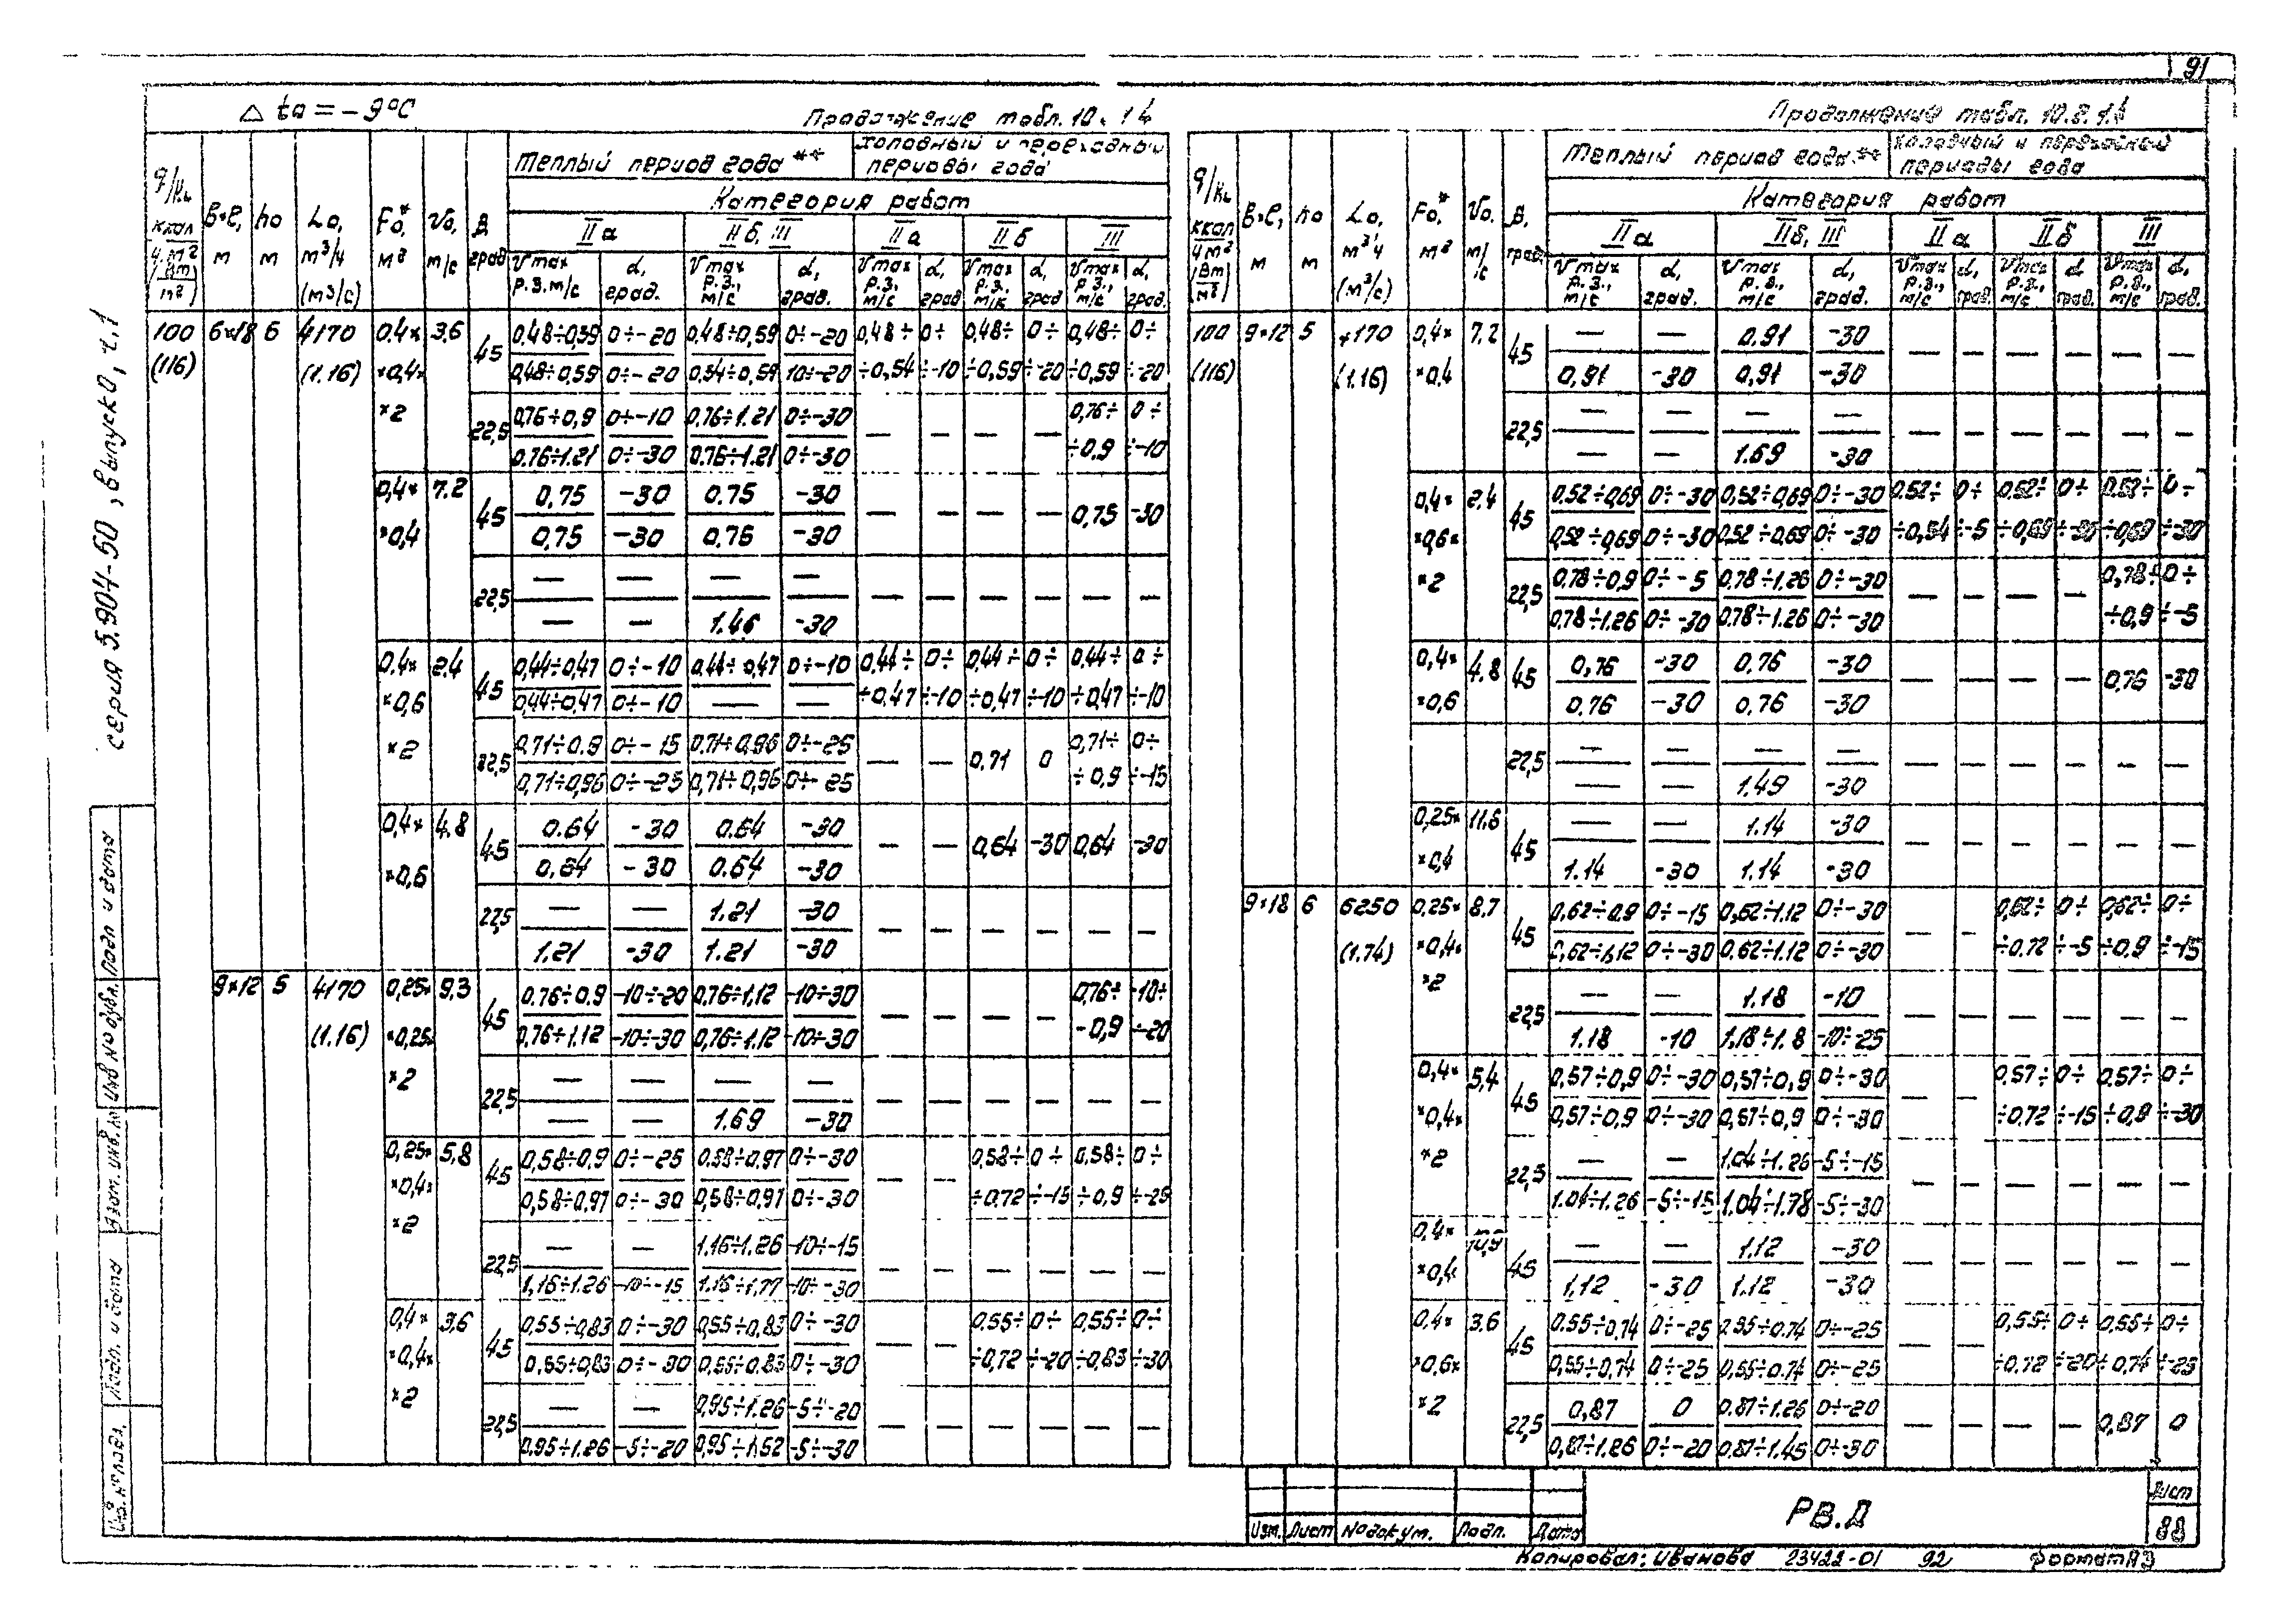 91
Δ tо = -9°С
Продолжение табл. 10.
Теплый период года **
Холодный и переходный периоды года
Категория работ
q/кL ккал/ч.м² (Вт/м²)
в×ℓ, м
hо м
Lо, м³/ч (м³/с)
Fо,* м²
Vо, м/с
В град
IIа
IIб, III
IIа
IIб
III
Vmax р.з. м/с
α, град.
100 6×18 6 4170 0.4× 3.6 45 0,48÷0,59 0÷-20 0,48÷0,59 0÷-20 0,48÷ 0÷ 0,48÷ 0÷ 0,48÷ 0÷
(116) (1.16) ×0,4× 0,48÷0,59 0÷-20 0,54÷0,59 10÷-20 ÷0,54 ÷-10 ÷0,59 ÷-20 ÷0,59 ÷-20
×2 22,5 0,76÷0,9 0÷-10 0,76÷1.21 0÷-30 — — — — 0,76÷ 0÷
0.76÷1.21 0÷-30 0.76÷1.21 0÷-30 ÷0.9 ÷-10
0,4× 7.2 45 0,75 -30 0.75 -30 — — — — 0,75 -30
×0,4 0,75 -30 0.76 -30
22,5 — — — — — — — — — —
— — 1.46 -30
0,4× 2.4 45 0,44÷0,47 0÷-10 0,44÷0,47 0÷-10 0,44÷ 0÷ 0,44÷ 0÷ 0,44÷ 0÷
×0,6 0,44÷0,47 0÷-10 — — ÷0,47 ÷-10 ÷0,47 ÷-10 ÷0,47 ÷-10
×2 22,5 0,71÷0.9 0÷-15 0,71÷0,96 0÷-25 — — 0.71 0 0,71÷ 0÷
0,71÷0,96 0÷-25 0,71÷0,96 0÷-25 ÷0,9 ÷-15
0,4× 4.8 45 0.64 -30 0.64 -30 — — 0,64 -30 0,64 -30
×0,6 0,64 -30 0.64 -30
22,5 — — 1.21 -30 — — — — — —
1.21 -30 1.21 -30
9×12 5 4170 0,25× 9,3 45 0,76÷0,9 -10÷-20 0,76÷1,12 -10÷30 — — — — 0,76÷ -10÷
(1.16) ×0,25× 0,76÷1.12 -10÷-30 0,76÷1.12 -10÷-30 -0,9 ÷-20
×2 22,5 — — — — — — — — — —
— — 1.69 -30
0,25× 5,8 45 0,58÷0,9 0÷-25 0.58÷0,97 0÷-30 — — 0,58÷ 0÷ 0.58÷ 0÷
×0,4× 0,58÷0,97 0÷-30 0,58÷0,97 0÷-30 ÷0.72 ÷-15 ÷0,9 ÷-25
×2 22,5 — — 1.16÷1.26 -10÷-15 — — — — — —
1,16÷1.26 -10÷-15 1.16÷1,77 -10÷-30
0,4× 3,6 45 0,55÷0,83 0÷-30 0,55÷0,83 0÷-30 — — 0.55÷ 0÷ 0,55÷ 0÷
×0,4× 0,55÷0,83 0÷-30 0,55÷0.83 0÷-30 ÷0,72 ÷-20 ÷0,83 ÷-30
×2 22,5 — — 0,95÷1.26 -5÷-20 — — — — — —
0.95÷1.26 -5÷-20 0,95÷1.52 -5÷-30
Продолжение табл. 10.
Теплый период года **
Холодный и переходной периоды года
Категория работ
q/кL ккал/ч м² (Вт/м²)
в×ℓ, м
hо м
Lо, м³/ч (м³/с)
Fо,* м²
Vо, м/с
В, град.
IIа
IIб, III
IIа
IIб
III
Vmax р.з., м/с
α, град.
100 9×12 5 4170 0,4× 7.2 45 — — 0.91 -30 — — — — — —
(116) (1.16) ×0.4 0,91 -30 0,91 -30
22,5 — — — — — — — — — —
— — 1.69 -30
0,4× 2,4 45 0.52÷0,69 0÷-30 0,52÷0,69 0÷-30 0.52÷ 0÷ 0.52÷ 0÷ 0.52÷ 0÷
×0,6× 0,52÷0,69 0÷-30 0.52÷0,69 0÷-30 ÷0,54 ÷-5 ÷0,69 ÷-30 ÷0,69 ÷-30
×2 22,5 0,78÷0,9 0÷-5 0,78÷1,26 0÷-30 — — — — 0,78÷ 0÷
0.78÷1.26 0÷-30 0.78÷1.26 0÷-30 ÷0,9 ÷-5
0,4× 4.8 45 0,76 -30 0.76 -30 — — — — 0,76 -30
×0,6 0.76 -30 0,76 -30
22,5 — — — — — — — — — —
— — 1.49 -30
0,25× 11.6 45 — — 1.14 -30 — — — — — —
×0,4 1.14 -30 1.14 -30
9×18 6 6250 0,25× 8,7 45 0,62÷0.9 0÷-15 0,62÷1.12 0÷-30 — — 0,62÷ 0÷ 0,62÷ 0÷
(1.74) ×0,4× 0,62÷1,12 0÷-30 0.62÷1.12 0÷-30 ÷0.72 ÷-5 ÷0,9 ÷-15
×2 22,5 — — 1.18 -10 — — — — — —
1.18 -10 1,18÷1.8 -10÷-25
0,4× 5,4 45 0,57÷0,9 0÷-30 0,57÷0,9 0÷-30 — — 0,57÷ 0÷ 0.57÷ 0÷
×0,4× 0,57÷0,9 0÷-30 0,57÷0,9 0÷-30 ÷0.72 ÷-15 ÷0,9 ÷-30
×2 22,5 — — 1.04÷1.26 -5÷-15 — — — — — —
1.04÷1.26 -5÷-15 1.04÷1.78 -5÷-30
0,4× 10,9 45 — — 1.12 -30 — — — — — —
×0,4 1,12 -30 1.12 -30
0,4× 3.6 45 0.55÷0,74 0÷-25 0.55÷0.74 0÷-25 — — 0,55÷ 0÷ 0,55÷ 0÷
×0,6× 0,55÷0,74 0÷-25 0,55÷0.74 0÷-25 ÷0.72 ÷-20 ÷0,74 ÷-25
×2 22,5 0,87 0 0.87÷1.26 0÷-20 — — — — 0,87 0
0,87÷1.26 0÷-20 0.87÷1.45 0÷-30
серия 5.904-50, выпуск 0, ч.1
Инв. № подл.
Подп. и дата
Взам. инв. №
Инв № дубл.
Подп и дата
Изм. Лист № докум. Подп. Дата
РВ.Д
Лист
88
Копировал: Иванова 23422-01 92 формат А3